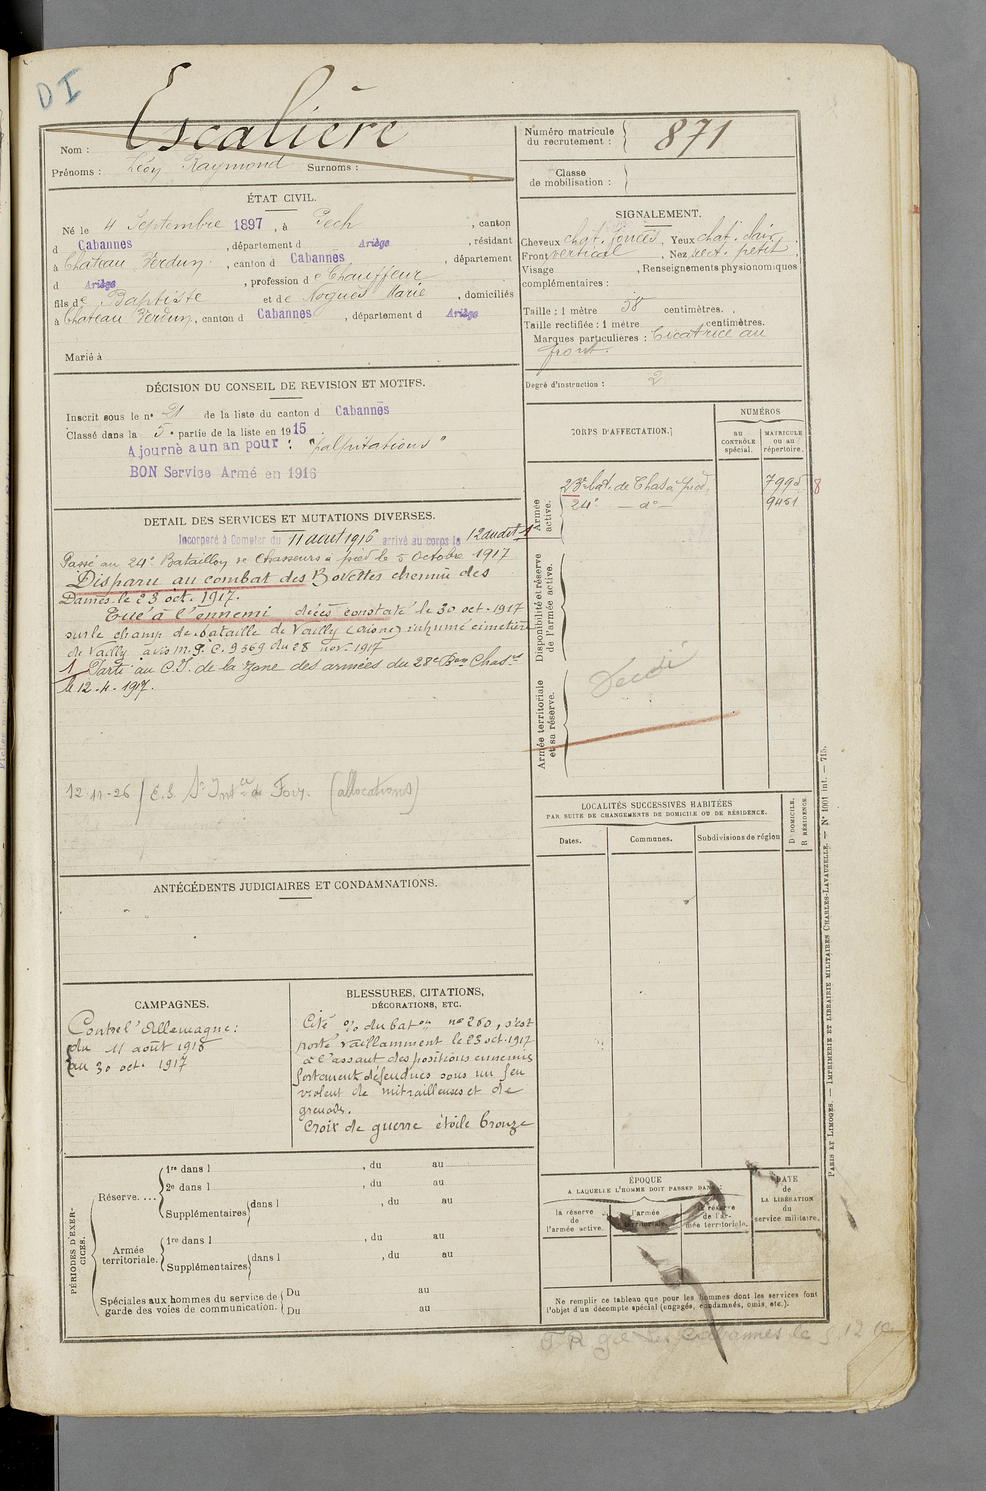 DI
Nom : Escalière
Prénoms : Léon Raymond Surnoms :
Numéro matricule du recrutement : 871
Classe de mobilisation :
ÉTAT CIVIL.
Né le 4 Septembre 1897, à Pech, canton
d Cabannes, département d Ariège, résidant
à Château Verdun, canton d Cabannes, département
d Ariège, profession de Chauffeur
fils de Baptiste et de Noguès Marie, domiciliés
à Château Verdun, canton d Cabannes, département d Ariège
Marié à
SIGNALEMENT.
Cheveux chat. foncés, Yeux chat. clair
Front vertical, Nez rect. petit,
Visage , Renseignements physionomiques
complémentaires :
Taille : 1 mètre 58 centimètres.
Taille rectifiée : 1 mètre centimètres.
Marques particulières : Cicatrice au
front.
Degré d'instruction : 2
DÉCISION DU CONSEIL DE REVISION ET MOTIFS.
Inscrit sous le n° 21 de la liste du canton d Cabannes
Classé dans la 5e partie de la liste en 1915
Ajourné a un an pour : "palpitations"
BON Service Armé en 1916
CORPS D'AFFECTATION.
NUMÉROS
au CONTRÔLE spécial.
MATRICULE ou au répertoire.
Armée active.
23e bat. de Chas à pied. 7995 8
24e — d° — 9451
Disponibilité et réserve de l'armée active.
Armée territoriale et sa réserve.
Décédé
DETAIL DES SERVICES ET MUTATIONS DIVERSES.
Incorporé à Compter du 11 aout 1916 arrivé au corps le 12 audit 1
Passé au 24e Bataillon de Chasseurs à pied le 5 Octobre 1917
Disparu au combat des Bovettes chemin des
Dames le 23 oct. 1917.
Tué à l'ennemi décès constaté le 30 oct. 1917
sur le champ de bataille de Vailly (Aisne) inhumé cimetière
de Vailly avis M. G. C. 9369 du 28 nov. 1917
1 Parti au C.I. de la zone des armées du 28e Bon Chasrs
le 12.4.1917.
12.11.26 / E.S. Foix. (allocations)
LOCALITÉS SUCCESSIVES HABITÉES
PAR SUITE DE CHANGEMENTS DE DOMICILE OU DE RÉSIDENCE.
Dates.
Communes.
Subdivisions de région
D DOMICILE. R RÉSIDENCE.
ANTÉCÉDENTS JUDICIAIRES ET CONDAMNATIONS.
CAMPAGNES.
Contre l'Allemagne :
du 11 août 1916
au 30 oct. 1917
BLESSURES, CITATIONS,
DÉCORATIONS, ETC.
Cité o/o du baton n° 260, s'est
porté vaillamment le 23 oct. 1917
à l'assaut des positions ennemies
fortement défendues sous un feu
violent de mitrailleuses et de
grenades.
Croix de guerre étoile bronze
PÉRIODES D'EXERCICES.
Réserve....
1re dans l , du au
2e dans l , du au
Supplémentaires dans l , du au
Armée territoriale.
1re dans l , du au
Supplémentaires dans l , du au
Spéciales aux hommes du service de garde des voies de communication.
Du au
Du au
ÉPOQUE
A LAQUELLE L'HOMME DOIT PASSER DANS :
la réserve de l'armée active.
l'armée territoriale.
la réserve de l'armée territoriale.
DATE de LA LIBÉRATION du service militaire.
Ne remplir ce tableau que pour les hommes dont les services font
l'objet d'un décompte spécial (engagés, condamnés, omis, etc.).
Cabannes le 12
PARIS ET LIMOGES. — IMPRIMERIE ET LIBRAIRIE MILITAIRES CHARLES-LAVAUZELLE. — N° 1001 int. — 715.